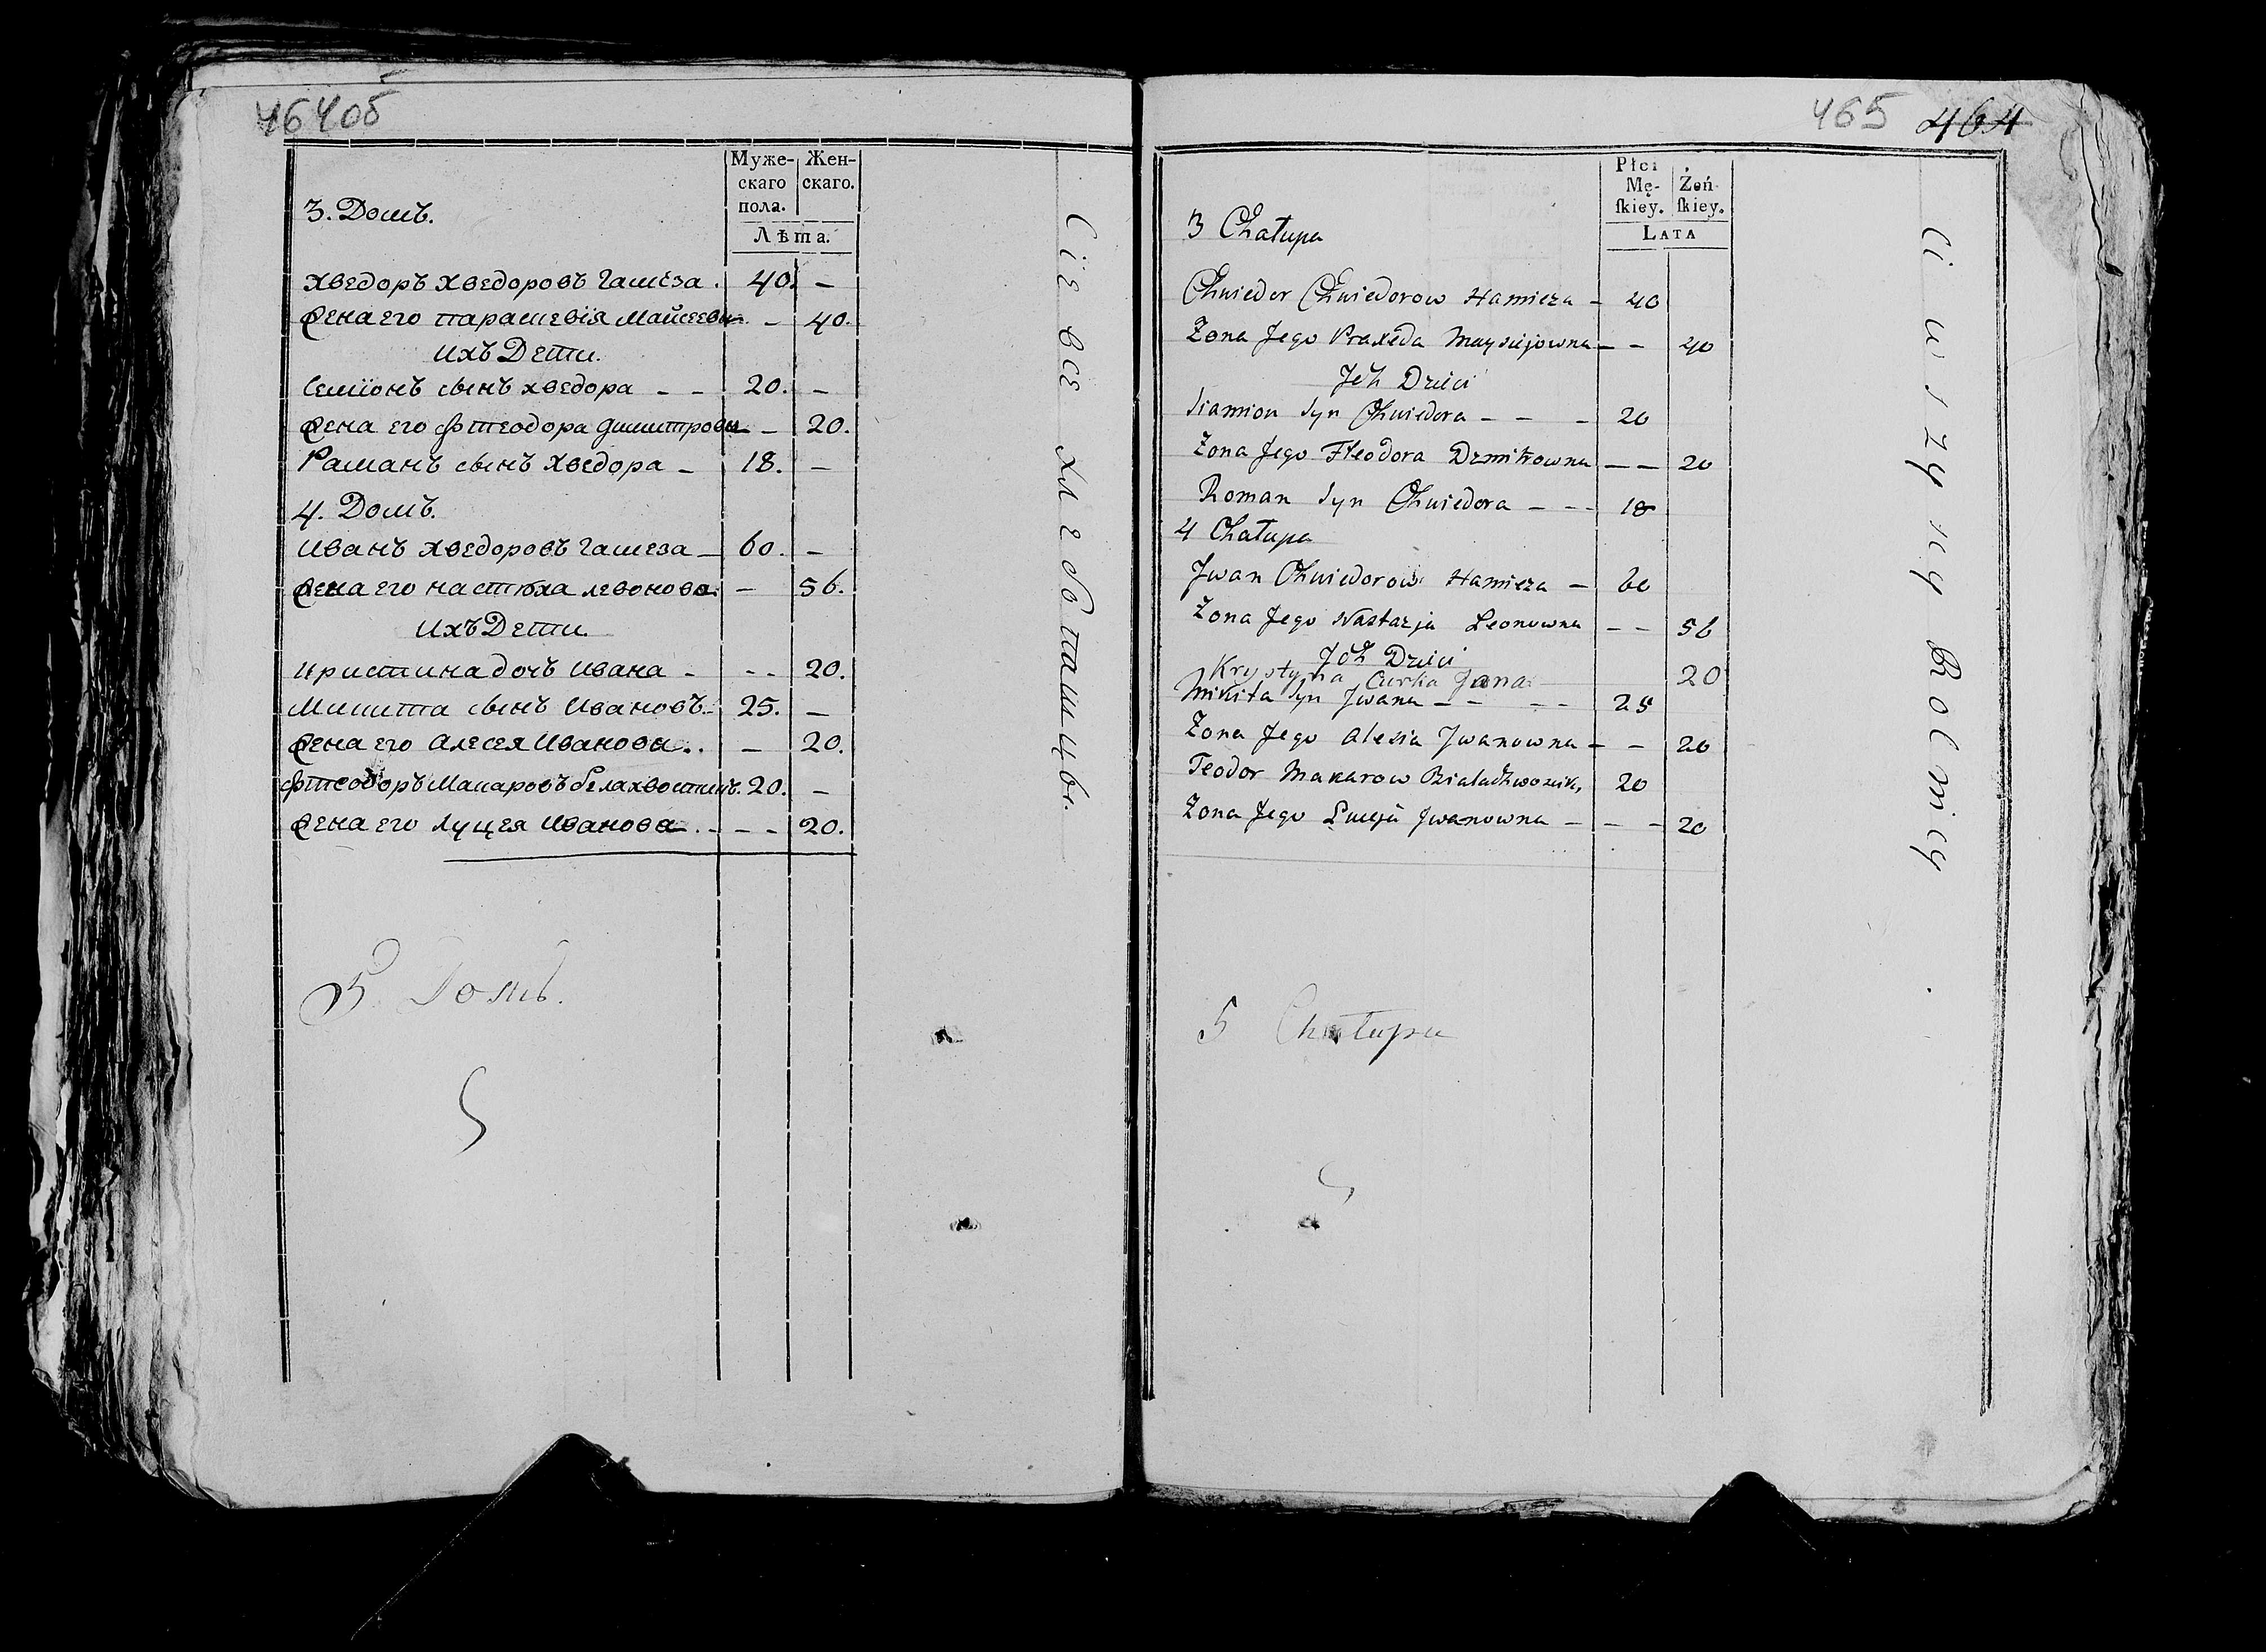 464об
Муже-
скаго
пола.
Жен-
скаго.
Лѣта.
3. Домъ.
Хведоръ Хведоровъ Гамеза . 40. –
Жена его Парашевія Майсеева – 40.
Ихъ Дети.
Семіонъ сынъ Хведора – – 20. –
Жена его Фтеодора Дмитрова – 20.
Раманъ сынъ Хведора – 18. –
4. Домъ.
Иванъ Хведоровъ Гамеза – 60. –
Жена его Настюха Левонова – 56.
Ихъ Дети.
Кристина дочъ Ивана - - - 20.
Микита сынъ Ивановъ – 25. –
Жена его Алесея Иванова . . – 20.
Фтеодоръ Макаровъ Белахвостикъ. 20. –
Жена его Луцея Иванова . - - - 20.
5. Домъ.
Сіе все хлебопашцы.
465 464
Płci
Mę-
ſkiey.
Żeń-
ſkiey.
LATA
3 Chałupa
Chwiedor Chwiedorow Hamieza – 40
Zona Jego Praxeda Maysiejowna – – 40
Jch Dzieci
Siamion Syn Chwiedora – – – 20
Zona Jego Fteodora Dzmitrowna – – 20
Roman Syn Chwiedora – - - 18
4 Chałupa
Jwan Chwiedorow Hamieza – 60
Zona Jego Nastazja Leonowna – – 56
Jch Dzieci
Krystyna Curka Jana 20
Mikita Syn Jwana – – – – 25
Zona Jego Alesia Jwanowna – – 20
Teodor Makarow Bialachwoscik, 20
Zona Jego Łucja Jwanowna – – – 20
5 Chałupa
Ci wszyscy Rolnicy.